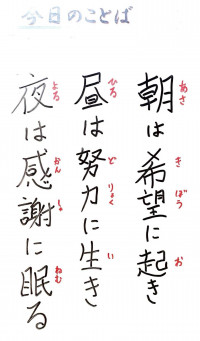 今日のことば
朝は希望に起き
あさ き ぼう お
昼は努力に生き
ひる ど りょく い
夜は感謝に眠る
よる かん しゃ ねむ